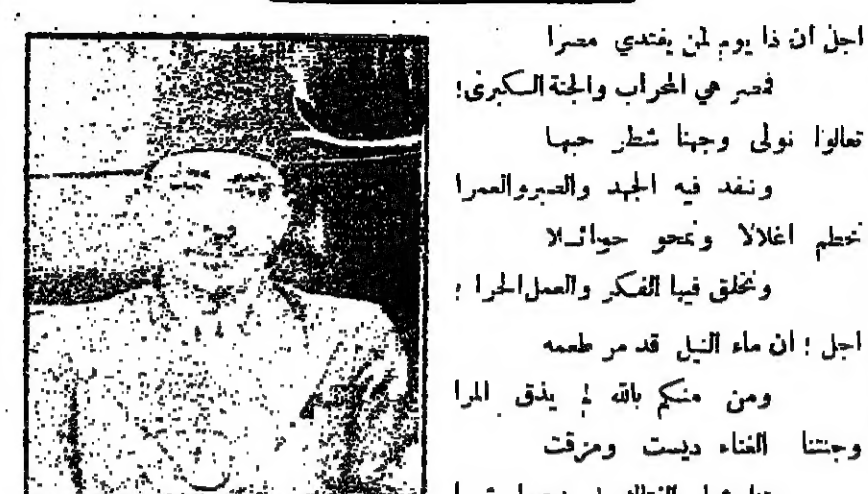 اجل ان ذا يوم لمن يفتدي مصرا
فمصر هي المحراب والجنة الكبرى!
تعالوا نولى وجهنا شطر حبها
وننفد فيه الجهد والصبر والعمرا
نحطم اغلالا ونمحو حوائلا
ونخلق فيها الفكر والعمل الحرا !
اجل ! ان ماء النيل قد مر طعمه
ومن منكم بالله لم يذق المرا
وجنتنا الغناء ديست ومزقت